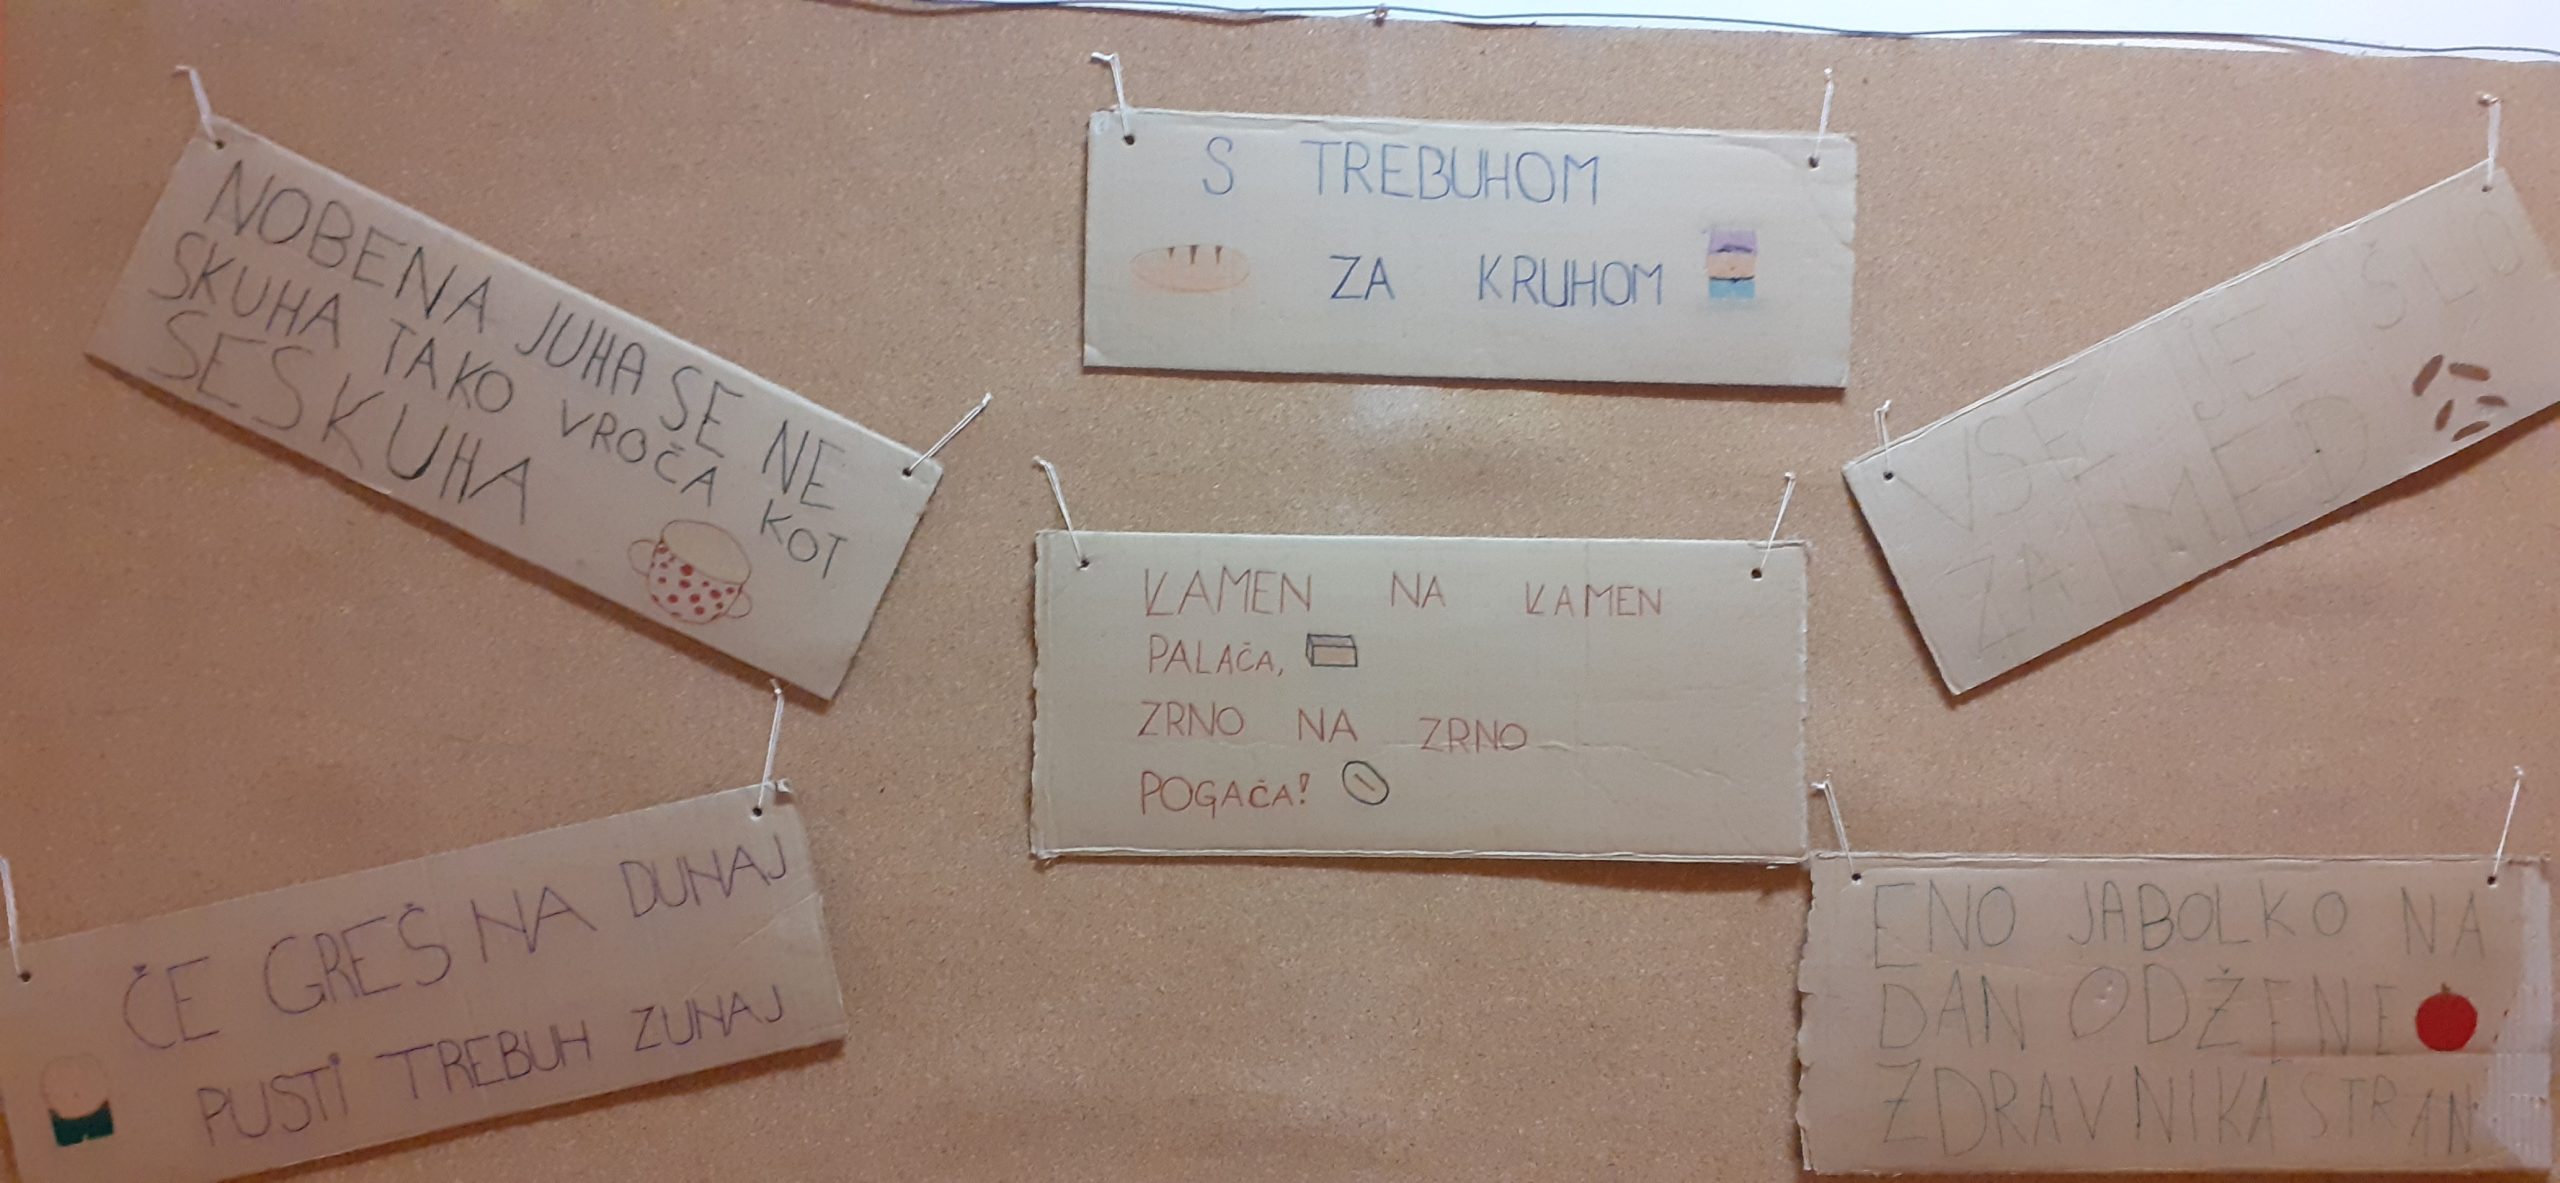 NOBENA JUHA SE NE
SKUHA TAKO VROČA KOT
SE SKUHA
S TREBUHOM
ZA KRUHOM
VSE JE ŠLO
ZA MED
KAMEN NA KAMEN
PALAČA,
ZRNO NA ZRNO
POGAČA!
ČE GREŠ NA DUNAJ
PUSTI TREBUH ZUNAJ
ENO JABOLKO NA
DAN ODŽENE
ZDRAVNIKA STRAN